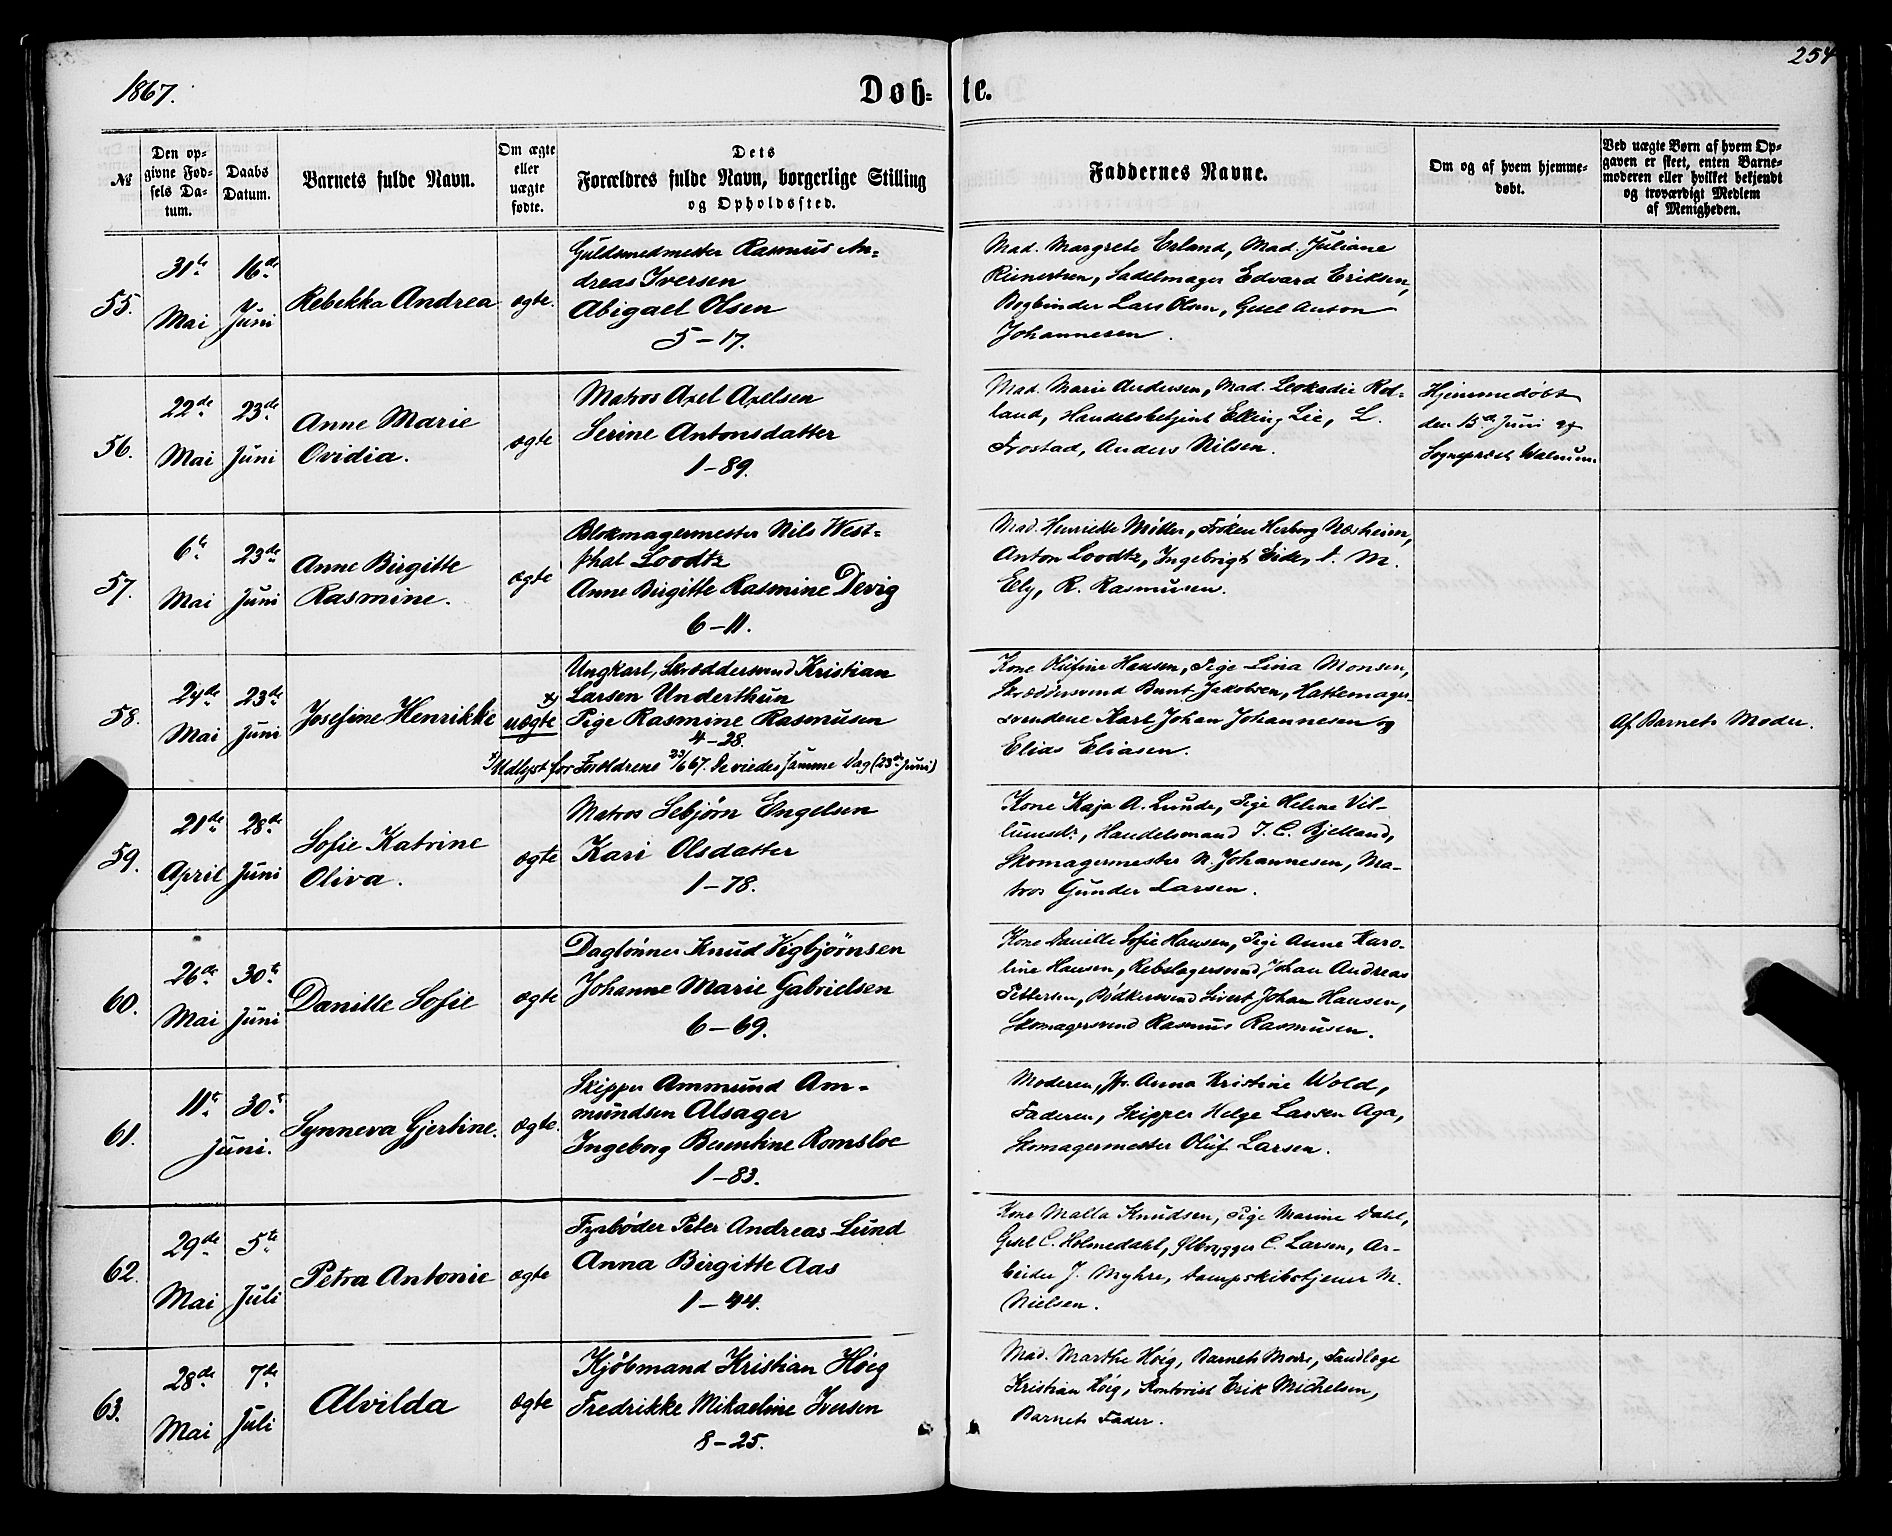 254
1867.
Døb= te.
№
Den op-
givne Fød-
sels Da-
tum.
Daabs
Datum.
Barnets fulde Navn.
Om ægte
eller
uægte
fødte.
Dets
Forældres fulde Navn, borgerlige Stilling
og Opholdssted.
Faddernes Navne.
Om og af hvem hjemme-
døbt.
Ved uægte Børn af hvem Op-
gaven er skeet, enten Barne-
moderen eller hvilket bekjendt
og troværdigt Medlem
af Menigheden.
55.
31te
Mai
16de
Juni
Rebekka Andrea
ægte.
Guldsmedmester Rasmus An=
dreas Iversen
Abigael Olsen
5-17.
Mad. Margrete Erland, Mad. Juliane
Reinertsen, Sadelmager Edvard Eriksen,
Bogbinder Lars Olsen, Gesel Anton
Johannesen.
56.
22de
Mai
23de
Juni
Anne Marie
Ovidia.
ægte
Matros Axel Axelsen
Serine Antonsdatter
1-89.
Mad. Marie Andersen, Mad. Leokadie Red-
land, Handelsbetjent Elling Lie, L.
Frostad, Anders Nilsen.
Hjemmedøbt
den 15de Juni af
Sognepræst Walnum.
57.
6te
Mai
23de
Juni
Anne Birgitte
Rasmine.
ægte
Blokmagermester Nils West=
phal Loodtz
Anne Birgitte Rasmine Devig
6-11.
Mad. Henriette Møller, Frøken Herborg Næsheim,
Anton Loodtz, Ingebrigt Eide, M.
Ely, R. Rasmusen.
58.
24de
Mai
23de
Juni
Josefine Henrikke
x)
uægte
Ungkarl, Skræddersvend Kristian
Larsen Underthun
Pige Rasmine Rasmusen
4-28.
x) Udlyst for Forældrene 23/6 67. De viedes samme Dag (23de Juni)
Kone Olufine Hansen, Pige Lina Monsen,
Skræddersvend Bernt Jakobsen, Hattemager-
svendene Karl Johan Johannesen og
Elias Eliasen.
Af Barnets Moder.
59.
21de
April
28de
Juni
Sofie Katrine
Oliva.
ægte
Matros Sebjørn Engelsen
Kari Olsdatter
1-78.
Kone Kaja A. Lunde, Pige Helene Vil-
lumsdr., Handelsmand T. C. Bjelland,
Skomagermester N. Johannesen, Ma-
tros Gunder Larsen.
60.
26de
Mai
30te
Juni
Danille Sofie
ægte
Daglønner Knud Vigbjørnsen
Johanne Marie Gabrielsen
6-69.
Kone Danille Sofie Hansen, Pige Anne Karo-
line Hansen, Rebslagersvend Johan Andreas
Pettersen, Bødkersvend Sivert Johan Hansen,
Skomagersvend Rasmus Rasmusen.
61.
11te
30te
Juni.
Synneva Gjertine.
ægte.
Skipper Ammund Am-
mundsen Alsager
Ingeborg Berntine Romsloe
1-83.
Moderen, Jfr. Anna Kristine Wold,
Faderen, Skipper Helge Larsen Aga,
Skomagermester Oluf Larsen.
62.
29de
Mai
5te
Juli
Petra Antonie
ægte
Fyrbøder Peter Andreas Lund
Anna Birgitte Aas
1-44.
Kone Malla Knudsen, Pige Marine Dahl,
Gesel C. Holmedahl, Ølbrygger C. Larsen, Ar-
beider J. Myhre, Dampskibstjener M.
Nielsen.
63.
28de
Mai
7de
Juli
Alvilda
ægte
Kjøbmand Kristian Høeg
Fredrikke Mikaeline Iversen
8-25.
Mad. Marthe Høeg, Barnets Moder, Tandlæge
Kristian Høeg, Kontorist Erik Michelsen,
Barnets Fader.